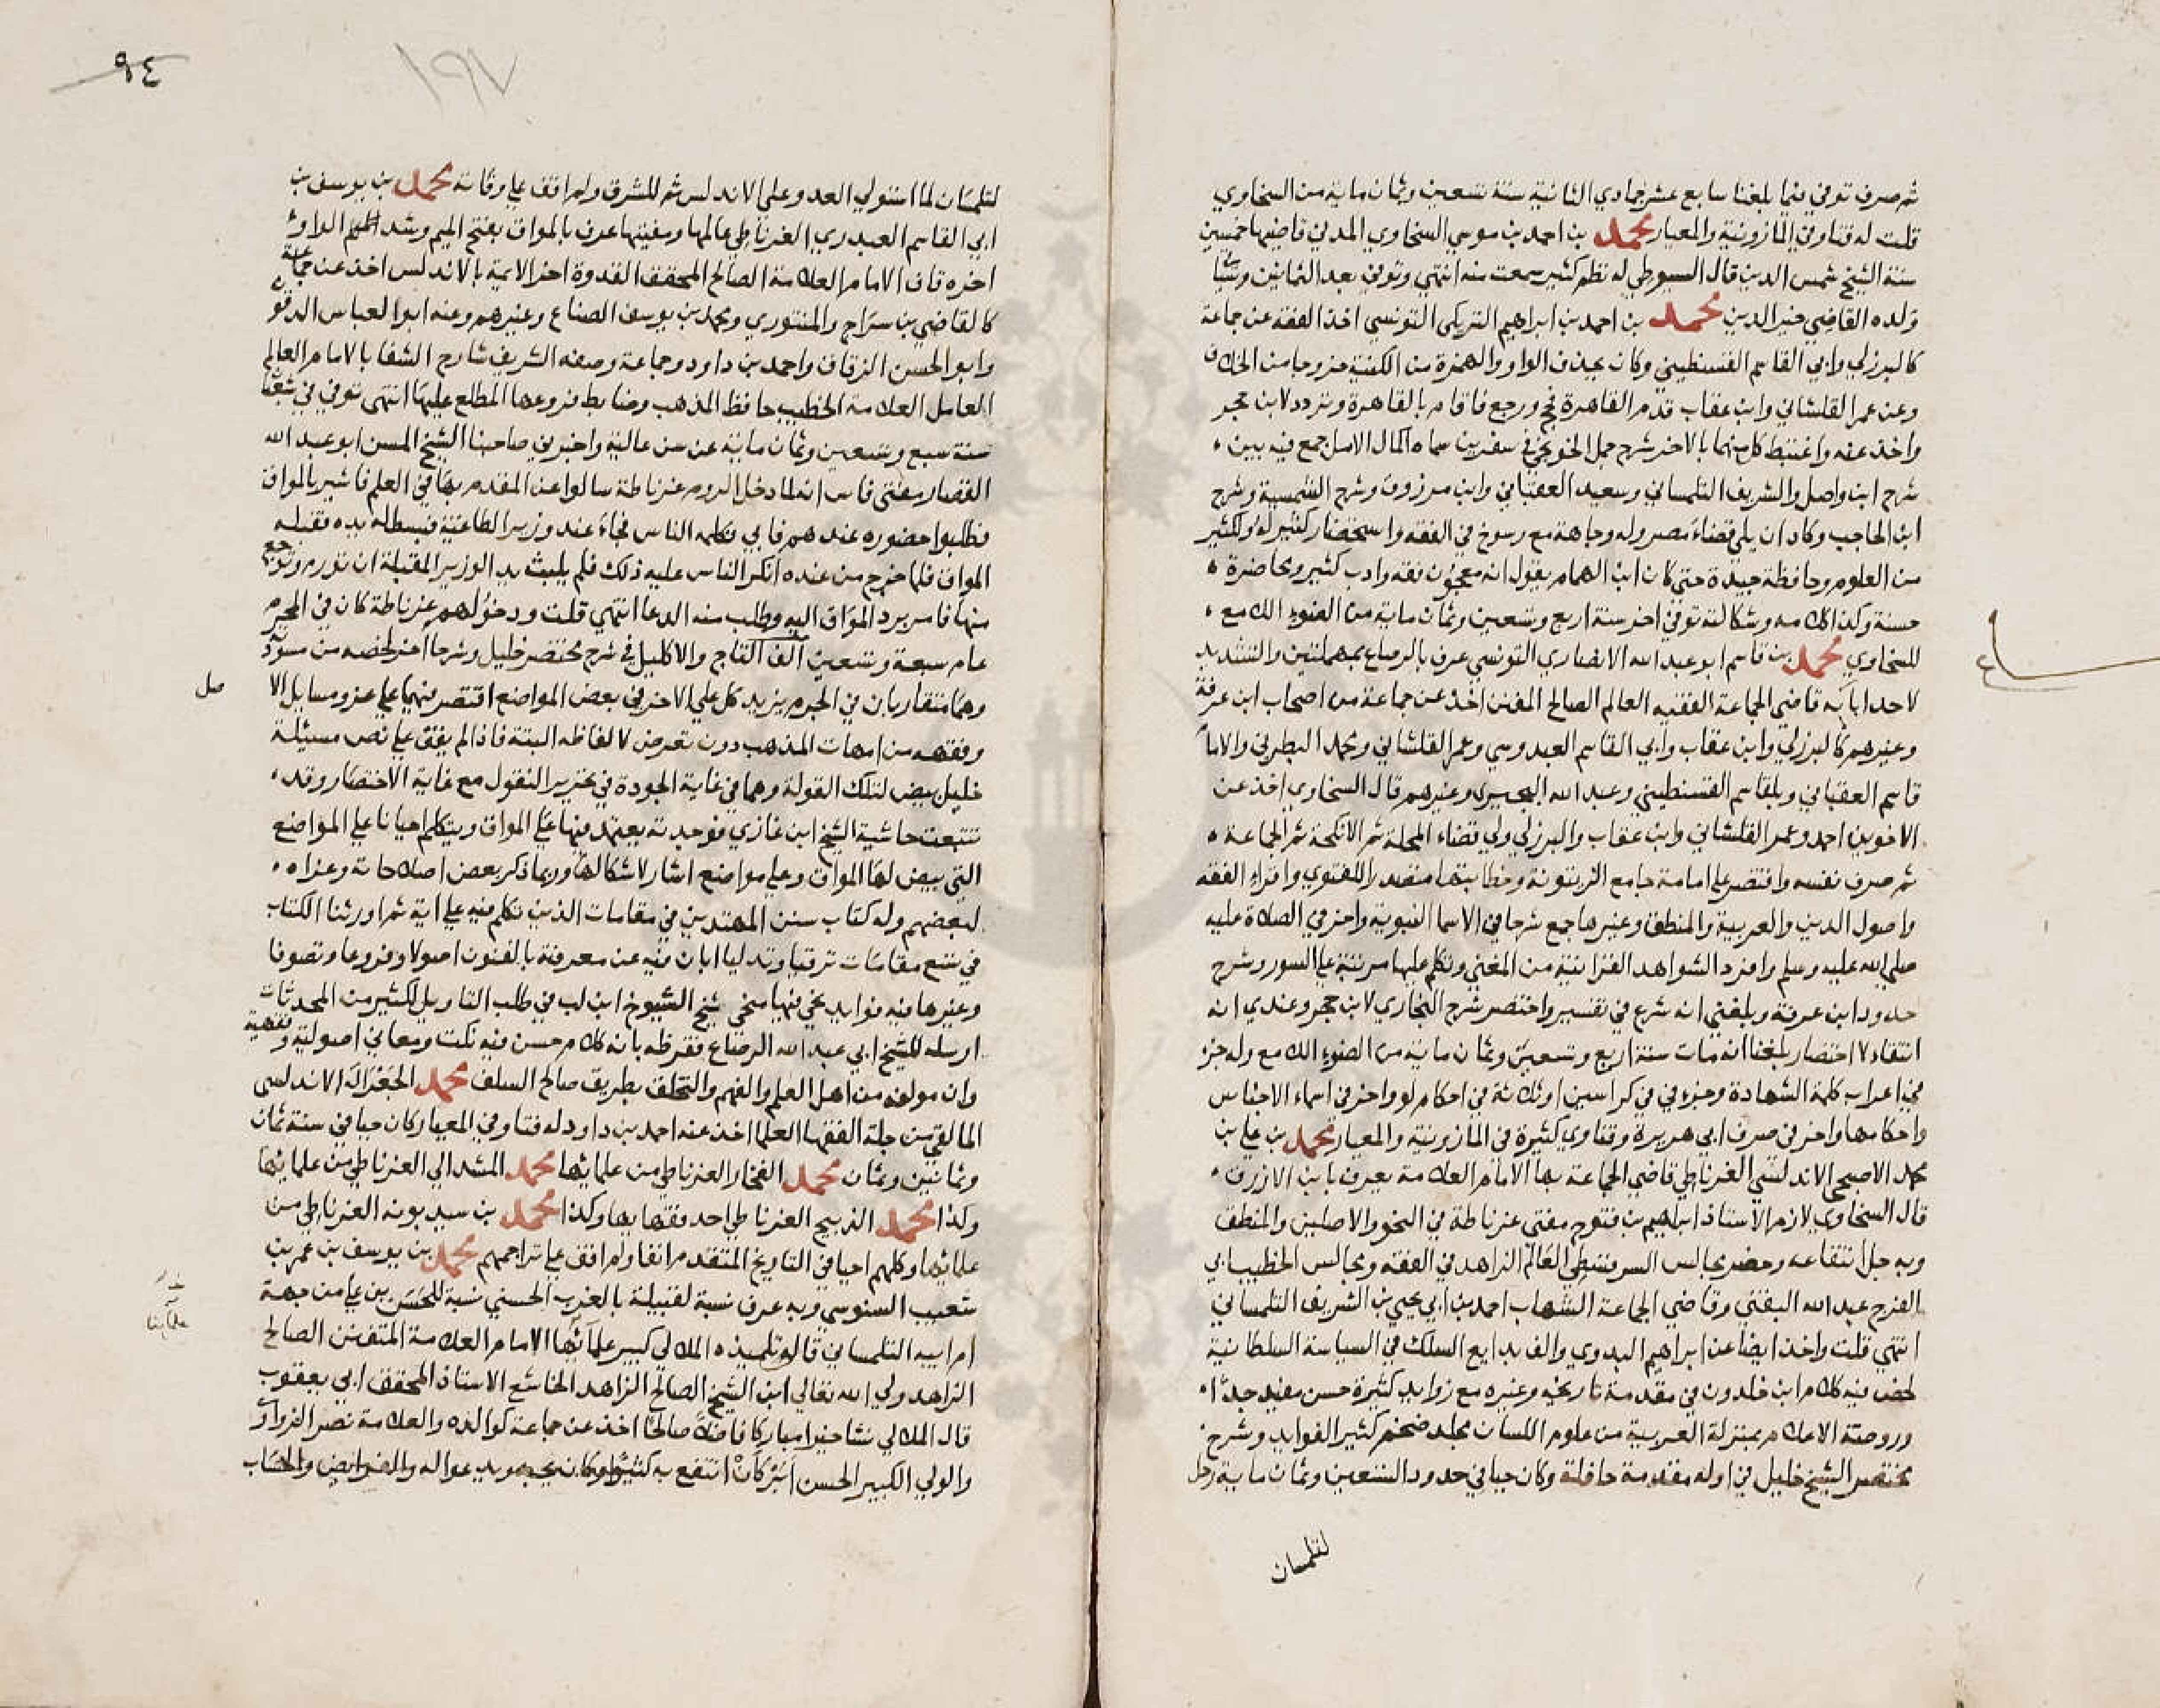 ثم صرف توفي فيما بلغنا سابع عشر جمادي الثانية سنة تسعين وثمان ماية من السخاوي
قلت له فتاوي في المازونية والمعيار محمد بن احمد بن موسي السخاوي المدني قاضيها خمسين
سنة الشيخ شمس الدين قال السيوطي له نظم كثير سمعت منه انتهي وتوفي بعد الثمانين
ولده القاضي خير الدين محمد بن احمد بن ابراهيم التريكي التونسي اخذ الفقه عن جماعة
كالبرزلي وابي القاسم القسنطيني وكان يحذف الواو والهمزة من الكنية خروجا من الخلاف
وعن عمر القلشاني وابن عقاب قدم القاهرة فحج ورجع فاقام بالقاهرة وتردد لابن حجر
واخذ عنه واغتبط كل منهما بالاخر شرح جمل الخونجي في سفرين سماه اكمال الامل جمع فيه بين
شرح ابن واصل والشريف التلمساني وسعيد العقباني وابن مرزوق وشرح الشمسية وشرح
ابن الحاجب وكاد ان يلي قضاء مصر وله وجاهة مع رسوخ في الفقه واستحضار كثير له ولكثير
من العلوم وحافظة جيدة حتي كان ابن الهمام يقول انه معجون فقه وادب كثير ومحاضرة
حسنة وكذا كلامه وشكالته توفي اخر سنة اربع وتسعين وثمان ماية من الضوء اللامع
للسخاوي محمد بن قاسم ابو عبد الله الانصاري التونسي عرف بالرصاع بمهملتين والتشديد
لاحد ابايه قاضي الجماعة الفقيه العالم الصالح المفنن اخذ عن جماعة من اصحاب ابن عرفة
وغيرهم كالبرزلي وابن عقاب وابي القاسم العبدوسي وعمر القلشاني ومحمد البطرني والاما
قاسم العقباني وبلقاسم القسنطيني وعبد الله البحيري وغيرهم قال السخاوي اخذ عن
الاخوين احمد وعمر القلشاني وابن عقاب والبرزلي ولي قضاء المحلة ثم الانكحة ثم الجماعة
ثم صرف نفسه واقتصر علي امامة جامع الزيتونة وخطابتها متصدرا للفتوي واقراء الفقه
واصول الدين والعربية والمنطق وغيرها جمع شرحا في الاسما النبوية واخر في الصلاة عليه
صلي الله عليه وسلم وافرد الشواهد القرانية من المغني وتكلم عليها مرتبة علي السور وشرح
حدود ابن عرفة وبلغني انه شرع في تفسير واختصر شرح البخاري لابن حجر وعندي انه
انتقاء لا اختصار بلغنا انه مات سنة اربع وتسعين وثمان ماية من الضوء اللامع وله جزء
في اعراب كلمة الشهادة وجزء في كراسين او ثلاثة في احكام لو واخر في اسماء الاجناس
واحكامها واخر في صرف ابي هريرة وفتاوي كثيرة في المازونية والمعيار محمد بن علي بن
محمد الاصبحي الاندلسي الغرناطي قاضي الجماعة بها الامام العلامة يعرف بابن الازرق
قال السخاوي لازم الاستاذ ابراهيم بن فتوح مفتي غرناطة في النحو والاصلين والمنطق
وبه جل انتفاعه وحضر مجالس السرقسطي العالم الزاهد في الفقه ومجالس الخطيب ابي
الفرج عبد الله البقني وقاضي الجماعة الشهاب احمد بن ابي يحيي بن الشريف التلمساني
انتهي قلت واخذ ايضا عن ابراهيم البدوي والف بدايع السلك في السياسة السلطانية
لخص فيه كلام ابن خلدون في مقدمة تاريخه وغيره مع زوايد كثيرة حسن مفيد جدا
وروضة الاعلام بمنزلة العربية من علوم اللسان مجلد ضخم كثير الفوايد وشرح
مختصر الشيخ خليل في اوله مقدمة حافلة وكان حيا في حدود التسعين وثمان ماية رحل
لتلمسان
٩٤
١٩٧
لتلمسان لما استولي العدو علي الاندلس ثم للمشرق ولم اقف علي وفاته محمد بن يوسف بن
ابي القاسم العبدري الغرناطي عالمها ومفتيها عرف بالمواق بفتح الميم وشد الواو
اخره قاف الامام العلامة الصالح المحقق القدوة اخر الايمة بالاندلس اخذ عن جماعة
كالقاضي بن سراج والمنتوري ومحمد بن يوسف الصناع وغيرهم وعنه ابو العباس الدقو
وابو الحسن الزقاق واحمد بن داود وجماعة وصفه الشريف شارح الشفا بالامام العالم
العامل العلامة الخطيب حافظ المذهب وضابط فروعها المطلع عليها انتهي توفي في شعبا
سنة سبع وتسعين وثمان ماية عن سن عالية واخبرني صاحبنا الشيخ المسن ابو عبد الله
القصار مفتي فاس انه لما دخل الروم غرناطة سالوا عن المقدم بها في العلم فاشير بالمواق
فطلبوا حضوره عندهم فابي فكلمه الناس فجاء عند وزير الطاغية فبسط له يده فقبله
المواق فلما خرج من عنده انكر الناس عليه ذلك فلم يلبث يد الوزير المقبلة ان تورم وتوجع
منها فامر برد المواق اليه وطلب منه الدعا انتهي قلت ودخولهم غرناطة كان في المحرم
عام سبعة وتسعين الف التاج والاكليل في شرح مختصر خليل وشرحا اخر لخصه من مسود
وهما متقاربان في الجرم يزيد كل علي الاخر في بعض المواضع اقتصر فيهما علي عزو مسايل الا
صل
وفقهه من امهات المذهب دون تعرض لالفاظه البتة فاذا لم يقف علي نص مسيلة
خليل بيض لتلك القولة وهما في غاية الجودة في تحرير النقول مع غاية الاختصار وقد
تتبعت حاشية الشيخ ابن غازي فوجدته يعتمد فيها علي المواق ويتكلم احيانا علي المواضع
التي بيض لها المواق وعلي مواضع اشار لاشكالها وربما ذكر بعض اصلاحاته وعزاه
لبعضهم وله كتاب سنن المهتدين في مقامات الدين تكلم فيه علي اية ثم اورثنا الكتاب
في تسع مقامات ترقيا وتدليا ابان فيه عن معرفة بالفنون اصولا وفروعا وتصوفا
وغيرها فيه فوايد نحي فيها منحي شيخ الشيوخ ابن لب في طلب التاويل لكثير من المحدثات
ارسله للشيخ ابي عبد الله الرصاع فقرظه بانه كلام حسن فيه نكت ومعاني اصولية وفقهية
وان مولفه من اهل العلم والفهم والتخلف بطريق صالح السلف محمد الجعدالة الاندلسي
المالقي من جلة الفقها العلما اخذ عنه احمد بن داود له فتاو في المعيار كان حيا في سنة ثمان
وثمانين وثمان محمد الفخار الغرناطي من علمائها محمد المشدالي الغرناطي من علمائها
وكذا محمد الذبيح الغرناطي احد فقهايها وكذا محمد بن سيد بونه الغرناطي من
علمائها وكلهم احيا في التاريخ المتقدم انفا ولم اقف علي تراجمهم محمد بن يوسف بن عمر بن
شعيب السنوسي وبه عرف نسبة لقبيلة بالغرب الحسني نسبة للحسن بن علي من جهة
علمائنا
ام ابيه التلمساني قاله تلميذه الملالي كبير علمائها الامام العلامة المتفنن الصالح
الزاهد ولي الله تعالي ابن الشيخ الصالح الزاهد الخاشع الاستاذ المحقق ابي يعقوب
قال الملالي نشا خيرا مباركا فاضلا صالحا اخذ عن جماعة كوالده والعلامة نصر الزواو
والولي الكبير الحسن ابركان انتفع به كثيرا وكان يحبه ويدعو له والفرايض والحساب